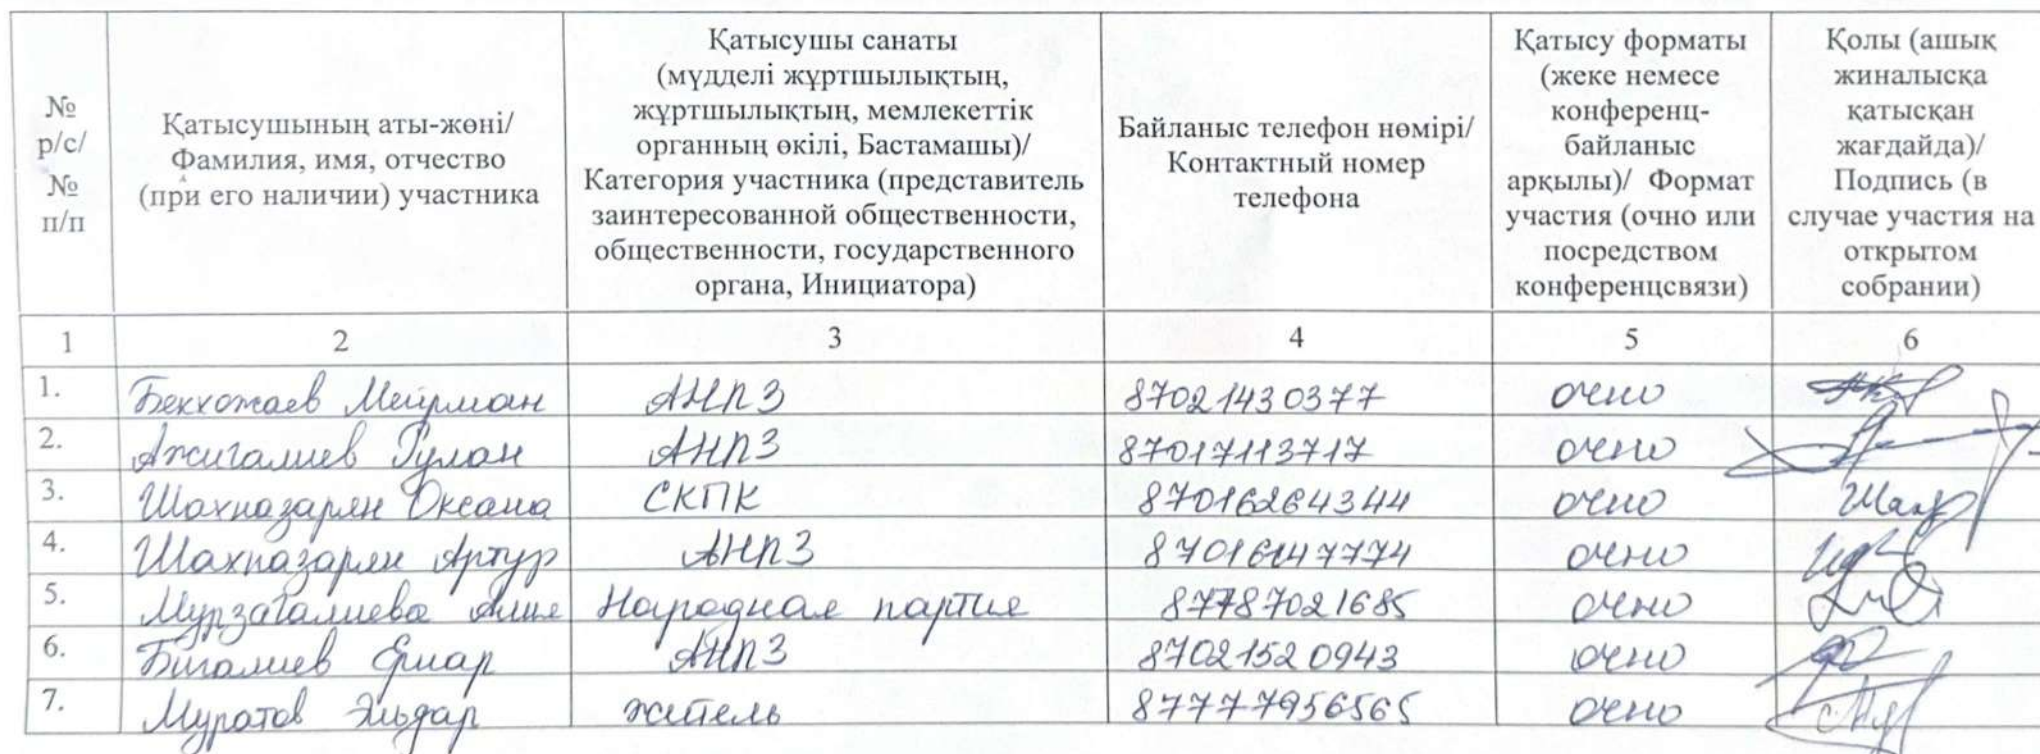 №
р/с/
№
п/п
Қатысушының аты-жөні/
Фамилия, имя, отчество
(при его наличии) участника
Қатысушы санаты
(мүдделі жұртшылықтың,
жұртшылықтың, мемлекеттік
органның өкілі, Бастамашы)/
Категория участника (представитель
заинтересованной общественности,
общественности, государственного
органа, Инициатора)
Байланыс телефон нөмірі/
Контактный номер
телефона
Қатысу форматы
(жеке немесе
конференц-
байланыс
арқылы)/ Формат
участия (очно или
посредством
конференцсвязи)
Қолы (ашық
жиналысқа
қатысқан
жағдайда)/
Подпись (в
случае участия на
открытом
собрании)
1 2 3 4 5 6
1. Бекхожаев Мейрман АНПЗ 87021430377 очно
2. Ажигалиев Гулан АНПЗ 87017113717 очно
3. Шахназарян Оксана СКПК 87016264344 очно
4. Шахназарян Артур АНПЗ очно
5. Мурзагалиева Алия Народная партия 87787021685 очно
6. Бигалиев Ермар АНПЗ 87021520943 очно
7. Муратов Эльдар житель 87777956565 очно